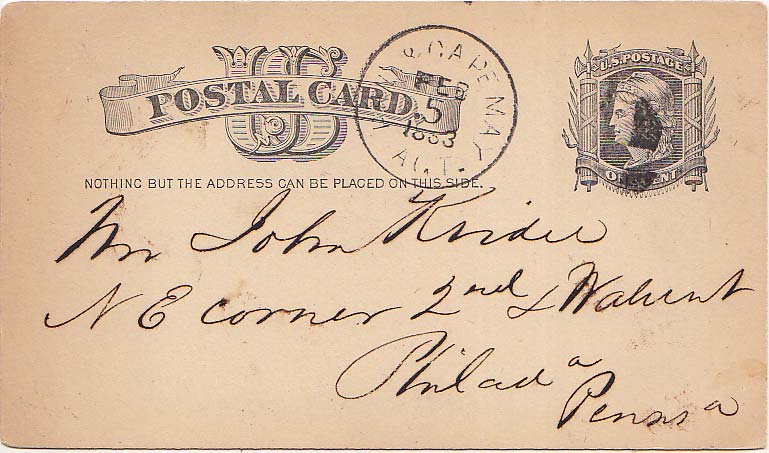 US
POSTAL CARD.
U.S. POSTAGE
ONE CENT
& CAPE MAY AGT.
FEB
5
1883
NOTHING BUT THE ADDRESS CAN BE PLACED ON THIS SIDE.
Mr John Krider
N E corner 2nd & Walnut
Philada
Penna